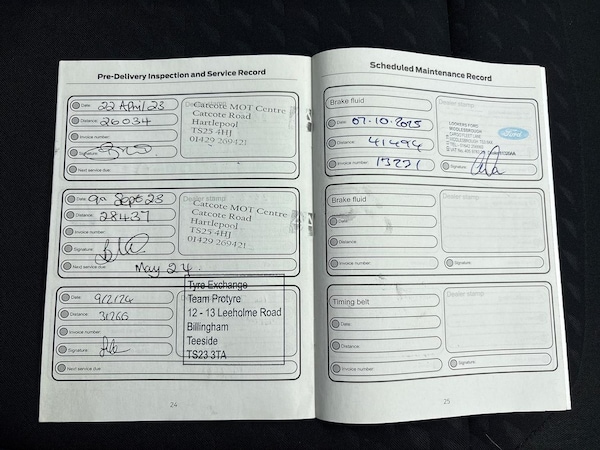 Pre-Delivery Inspection and Service Record
Date: 22 April 23
Distance: 26034
Invoice number:
Signature:
Next service due:
Dealer stamp
Catcote MOT Centre
Catcote Road
Hartlepool
TS25 4HJ
01429 269421
Date: 9th Sept 23
Distance: 28437
Invoice number:
Signature:
Next service due: May 24
Dealer stamp
Catcote MOT Centre
Catcote Road
Hartlepool
TS25 4HJ
01429 269421
Date: 9/2/24
Distance: 31266
Invoice number:
Signature:
Next service due:
Tyre Exchange
Team Protyre
12 - 13 Leeholme Road
Billingham
Teeside
TS23 3TA
24
Scheduled Maintenance Record
Brake fluid
Date: 07-10-2025
Distance: 41494
Invoice number: 13271
Dealer stamp:
LOOKERS FORD
MIDDLESBROUGH
Ford
Signature:
Brake fluid
Date:
Distance:
Invoice number:
Dealer stamp:
Signature:
Timing belt
Date:
Distance:
Invoice number:
Dealer stamp:
Signature:
25